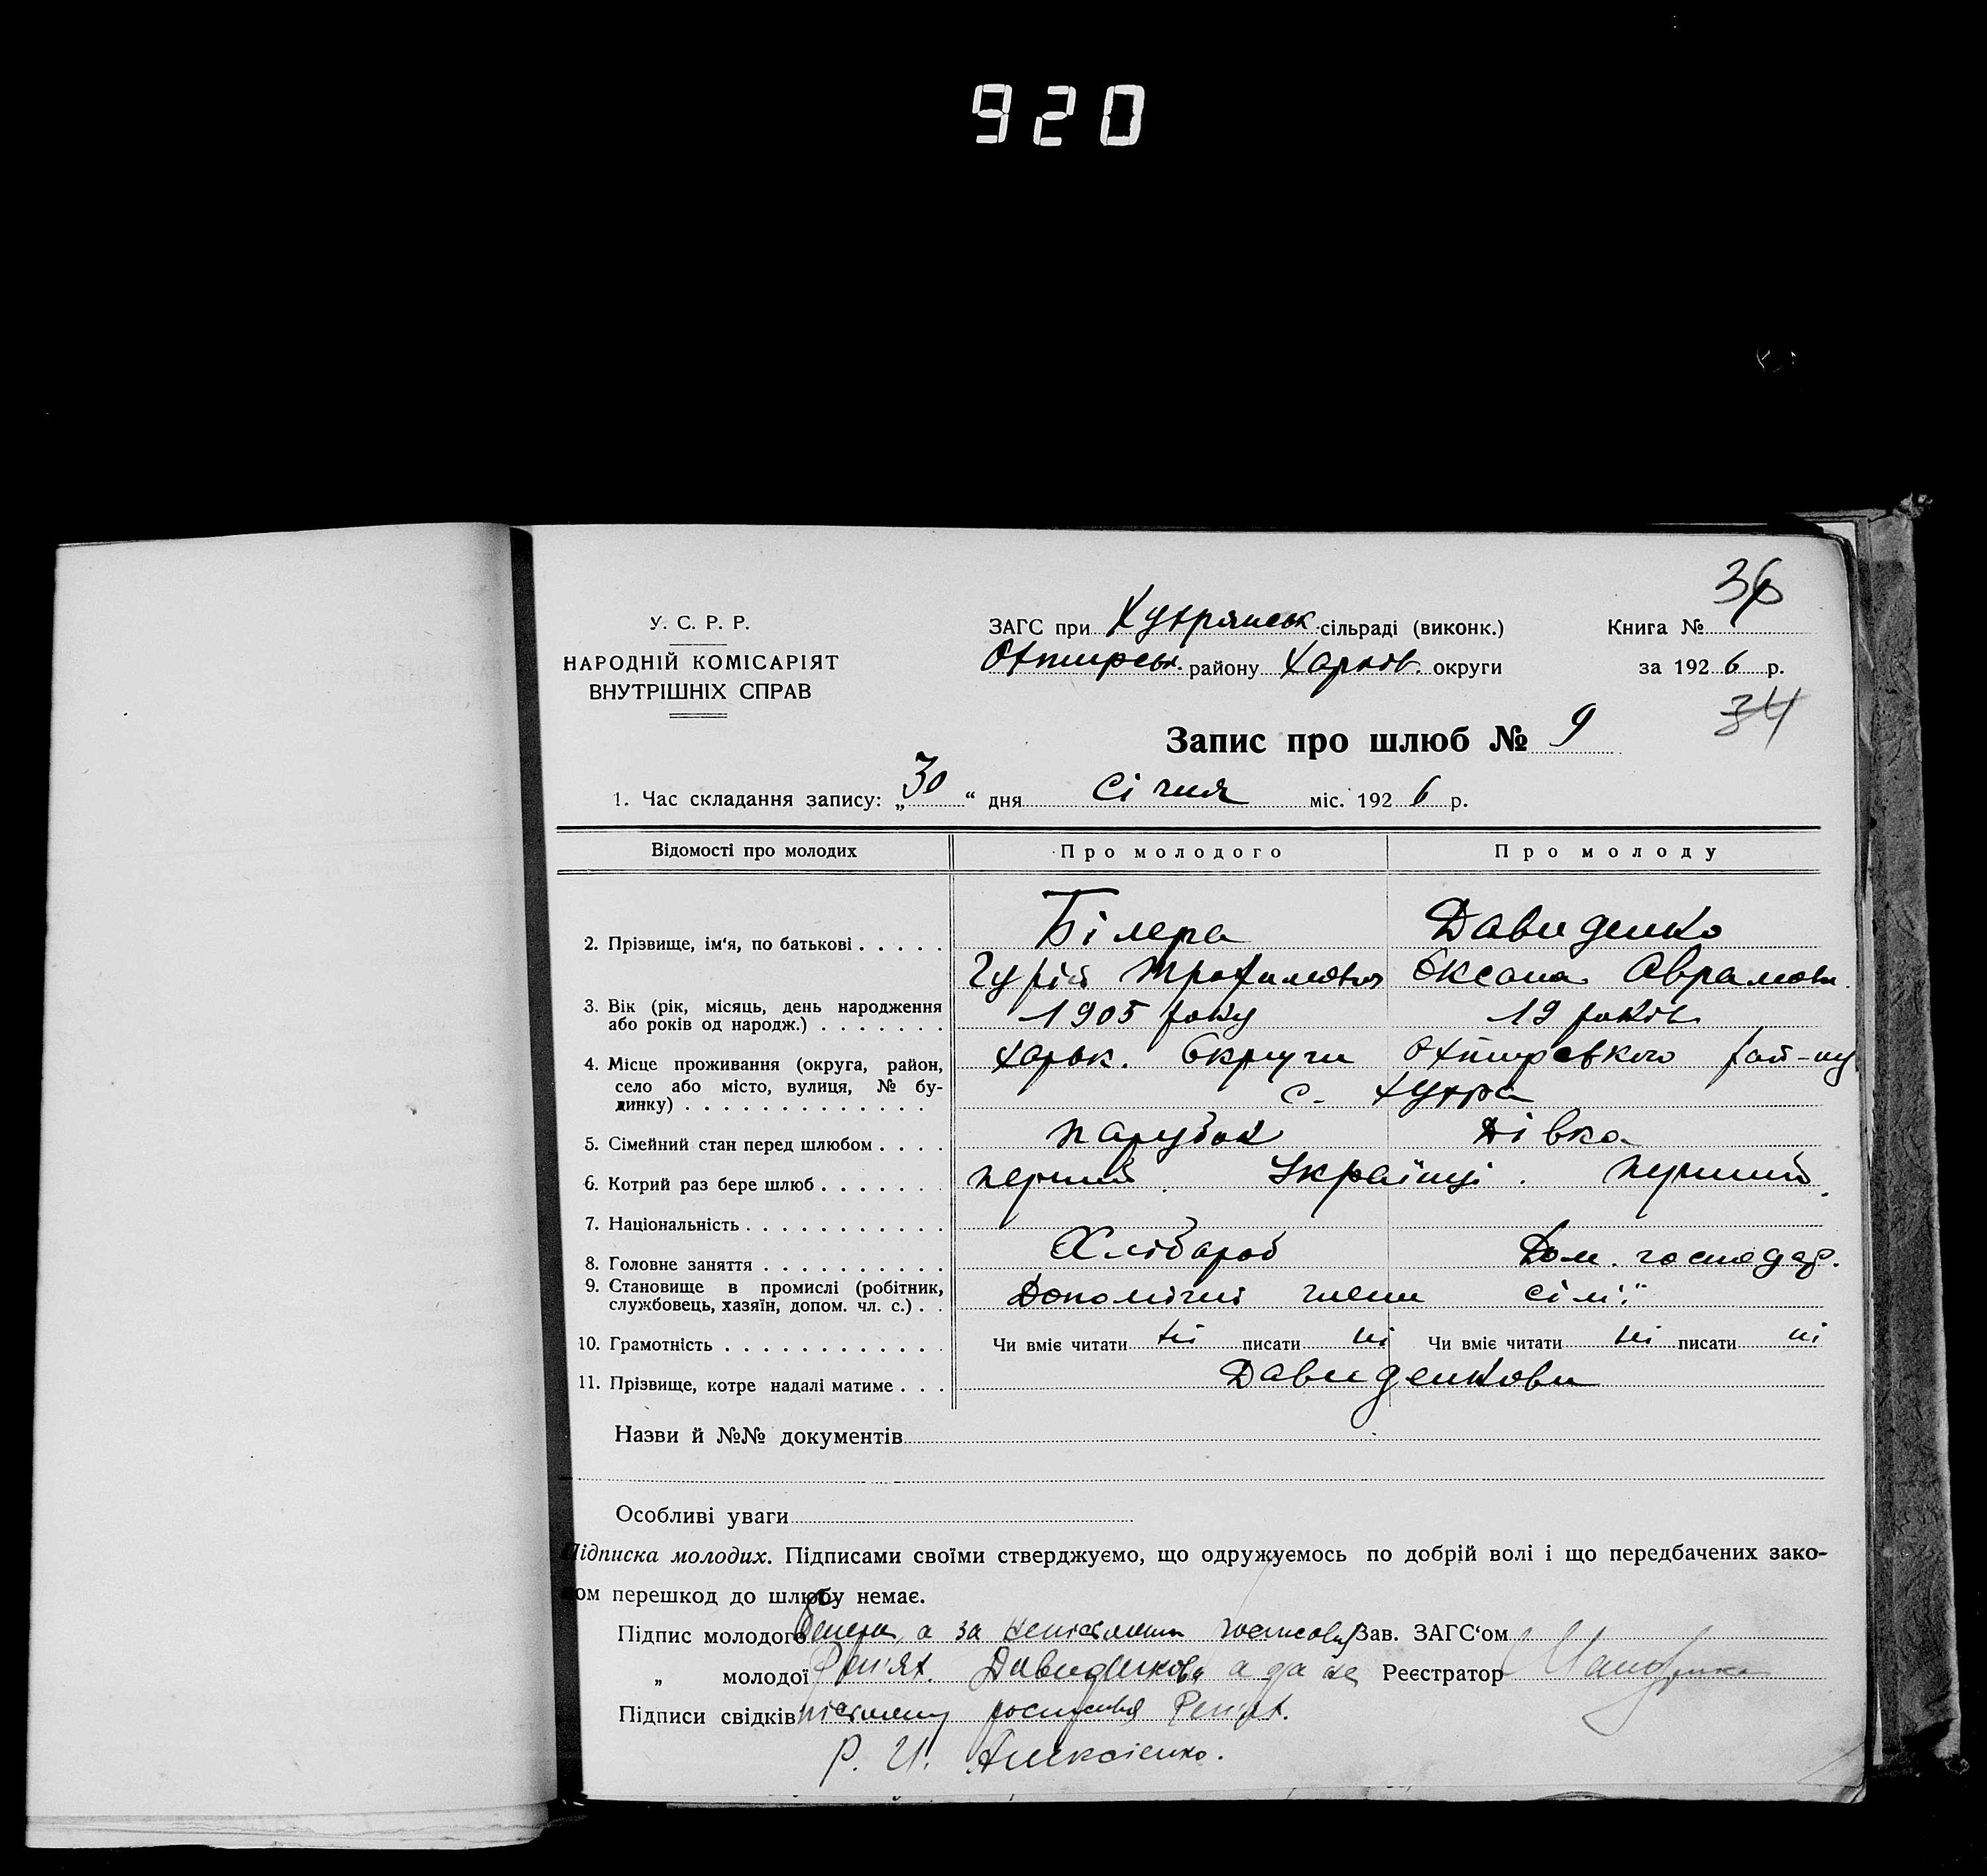 920
36
У. С. Р. Р.
НАРОДНІЙ КОМІСАРІЯТ
ВНУТРІШНІХ СПРАВ
ЗАГС при Хухрянськ. сільраді (виконк.)
Охтирськ. району Харків. округи
Книга №
за 1926 р.
34
Запис про шлюб № 9
1. Час складання запису: „30“ дня Січня міс. 1926 р.
Відомості про молодих Про молодого Про молоду
2. Прізвище, ім'я, по батькові Білера Давиденко
Гурій Трофимович Оксана Аврамовн.
3. Вік (рік, місяць, день народження або років од народж.) 1905 року 19 років
4. Місце проживання (округа, район, село або місто, вулиця, № будинку) Харьк. Округи Охтирського рай-ну
с. Хухра
5. Сімейний стан перед шлюбом Парубок Дівка
6. Котрий раз бере шлюб перший. Українці. перший.
7. Національність
8. Головне заняття Хлібароб Дом. господар.
9. Становище в промислі (робітник, службовець, хазяїн, допом. чл. с.) Допомічні члени сім'ї
10. Грамотність Чи вміє читати ні писати ні Чи вміє читати ні писати ні
11. Прізвище, котре надалі матиме Давиденкови
Назви й №№ документів
Особливі уваги
Підписка молодих. Підписами своїми стверджуємо, що одружуємось по добрій волі і що передбачених зако-
ном перешкод до шлюбу немає.
Підпис молодого а за Зав. ЗАГС'ом
„ молодої Давиденкова а за не Реєстратор
Підписи свідків письменну
Р. И. Алексієнко.